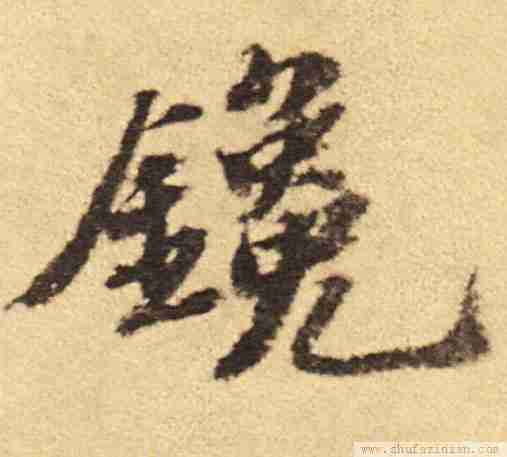 鑱
www.shufazidian.com